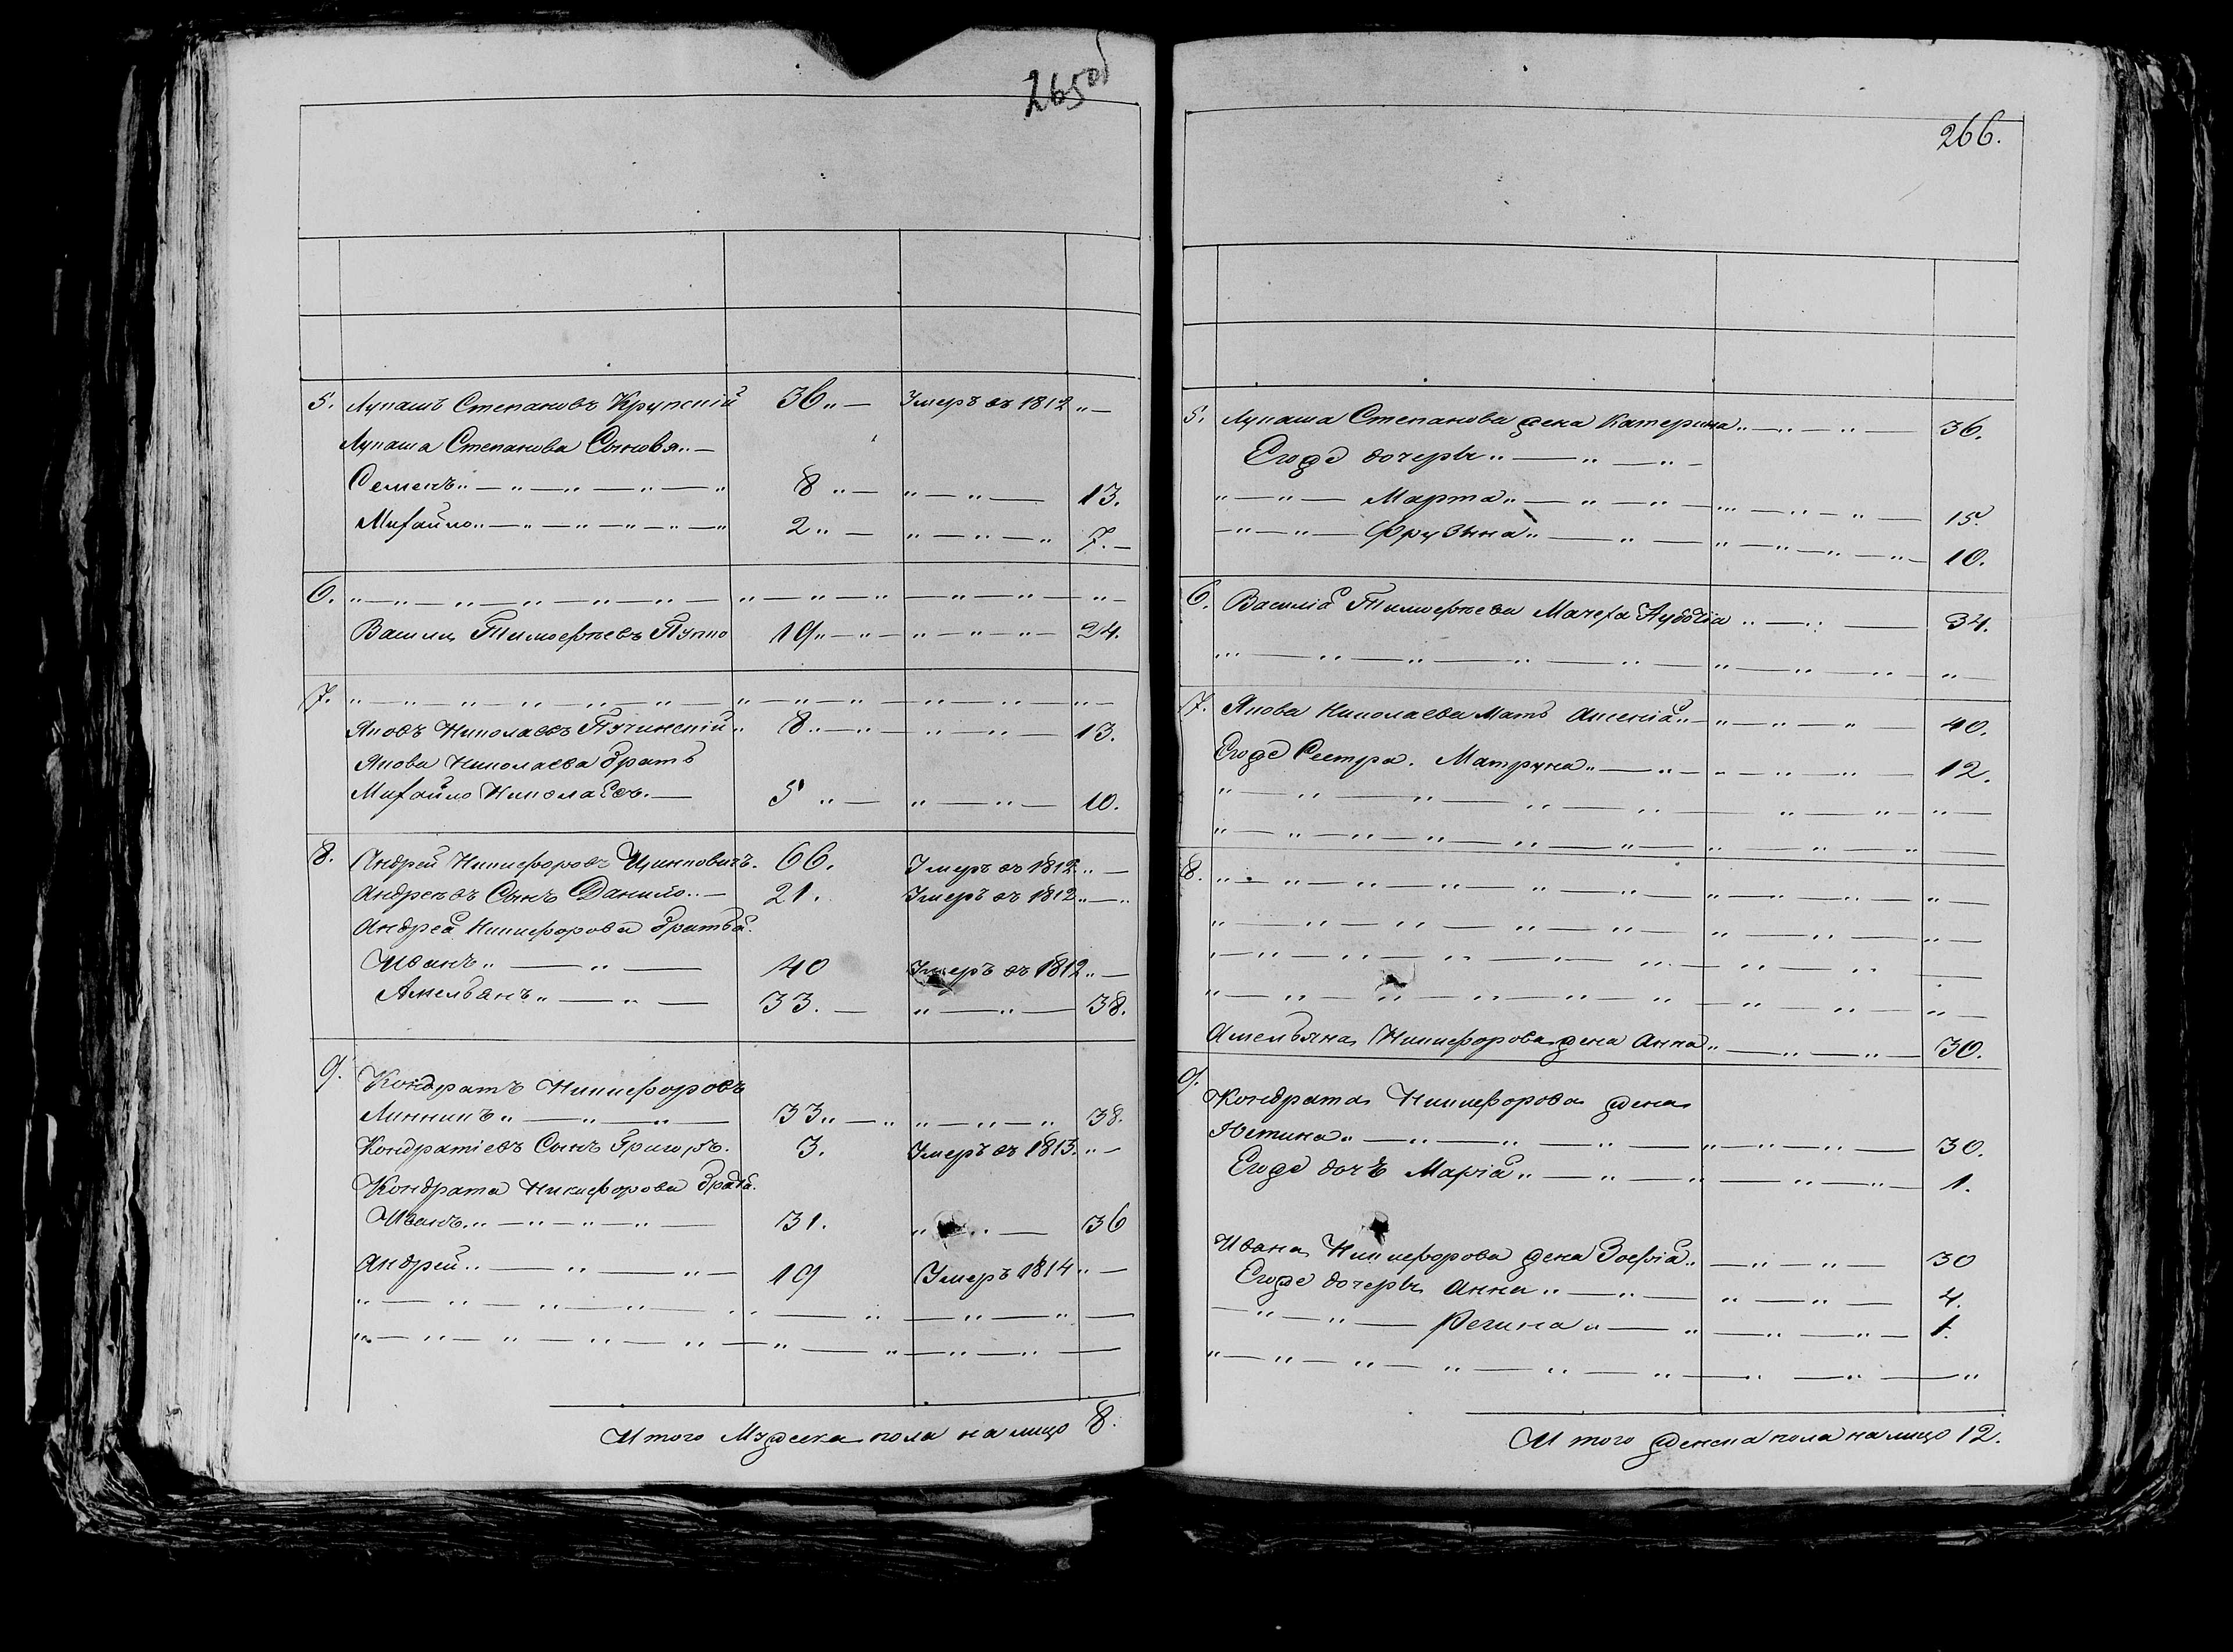 265об
5. Лукашъ Степановъ Крупскій 36„— Умеръ въ 1812„—
Лукаша Степанова Сыновья„—
Семенъ„—„—„—„—„ 8„— „—„— 13.
Михайло„—„—„—„—„—„ 2„— „—„—„ 7.—
6. „—„—„—„—„—„— „—„—„ —„—„— „—
Васили Тимофеевъ 19„—„— „—„—„— 24.
7. „—„—„—„—„—„— „—„—„ —„—„— „—
Яковъ Николаевъ Пучинскій„ 8„—„— „—„— 13.
Якова Николаева братъ
Михайло Николаевъ.— 5„— „—„— 10.
8. Андрей Никифоровъ 66. Умеръ въ 1812„—
Андреевъ Сынъ Данило„— 21. Умеръ въ 1812„—„
Андрея Никифорова братья.
Иванъ„—„— 40 Умеръ въ 1812„—
Амельянъ„—„— 33.— „—„— 38.
9. Кондратъ Никифоровъ
Линникъ„—„— 33„—„ „—„—„ 38.
Кондратіевъ Сынъ Григоръ. 3. Умеръ въ 1813.„—
Кондрата Никифорова братья.
Иванъ„—„—„—„— 31. „—„— 36
Андрей„—„—„— 19 Умеръ 1814„—
„—„—„—„—„—„—„—„—„—
„—„—„—„—„—„—„—„—„—
И того Мужеска пола на лицо 8.
266.
5. Лукаша Степанова жена Катерина„—„—„— 36.
Егоже дочеры„—„—„—
„—„— Марта„—„—„— „—„—„— 15.
—„—„— Фрузына„—„— „—„—„—„— 10.
6. Василія Тимофеева Мачеха „—„— 34.
„—„—„—„—„— „—„—„— „—
7. Якова Николаева Мать Аксенія„— „—„—„— 40.
Егоже Сестра. Матруна„—„— „—„—„— 12.
„—„—„—„—„— „—„— „—
„—„—„—„—„—„— „—„—„ —
8. „—„—„—„—„—„— „—„—„— „—
„—„—„—„—„— „—„— „—
„—„—„—„—„— „—„— —
„—„—„—„—„—„ —„—„— „—
Амельяна Никифорова жена Анна„—„—„— 30.
9. Кондрата Никифорова жена
Юстина„—„—„—„— „—„—„— 30.
Егоже дочь Марія„—„—„ —„—„— 1.
Ивана Никифорова жена Зоефія„ —„—„— 30
Егоже дочеры Анна„—„— „—„— 4.
—„—„— Регина„—„ —„—„— 1.
„—„—„—„—„—„— „—„—„
И того женска пола на лицо 12.